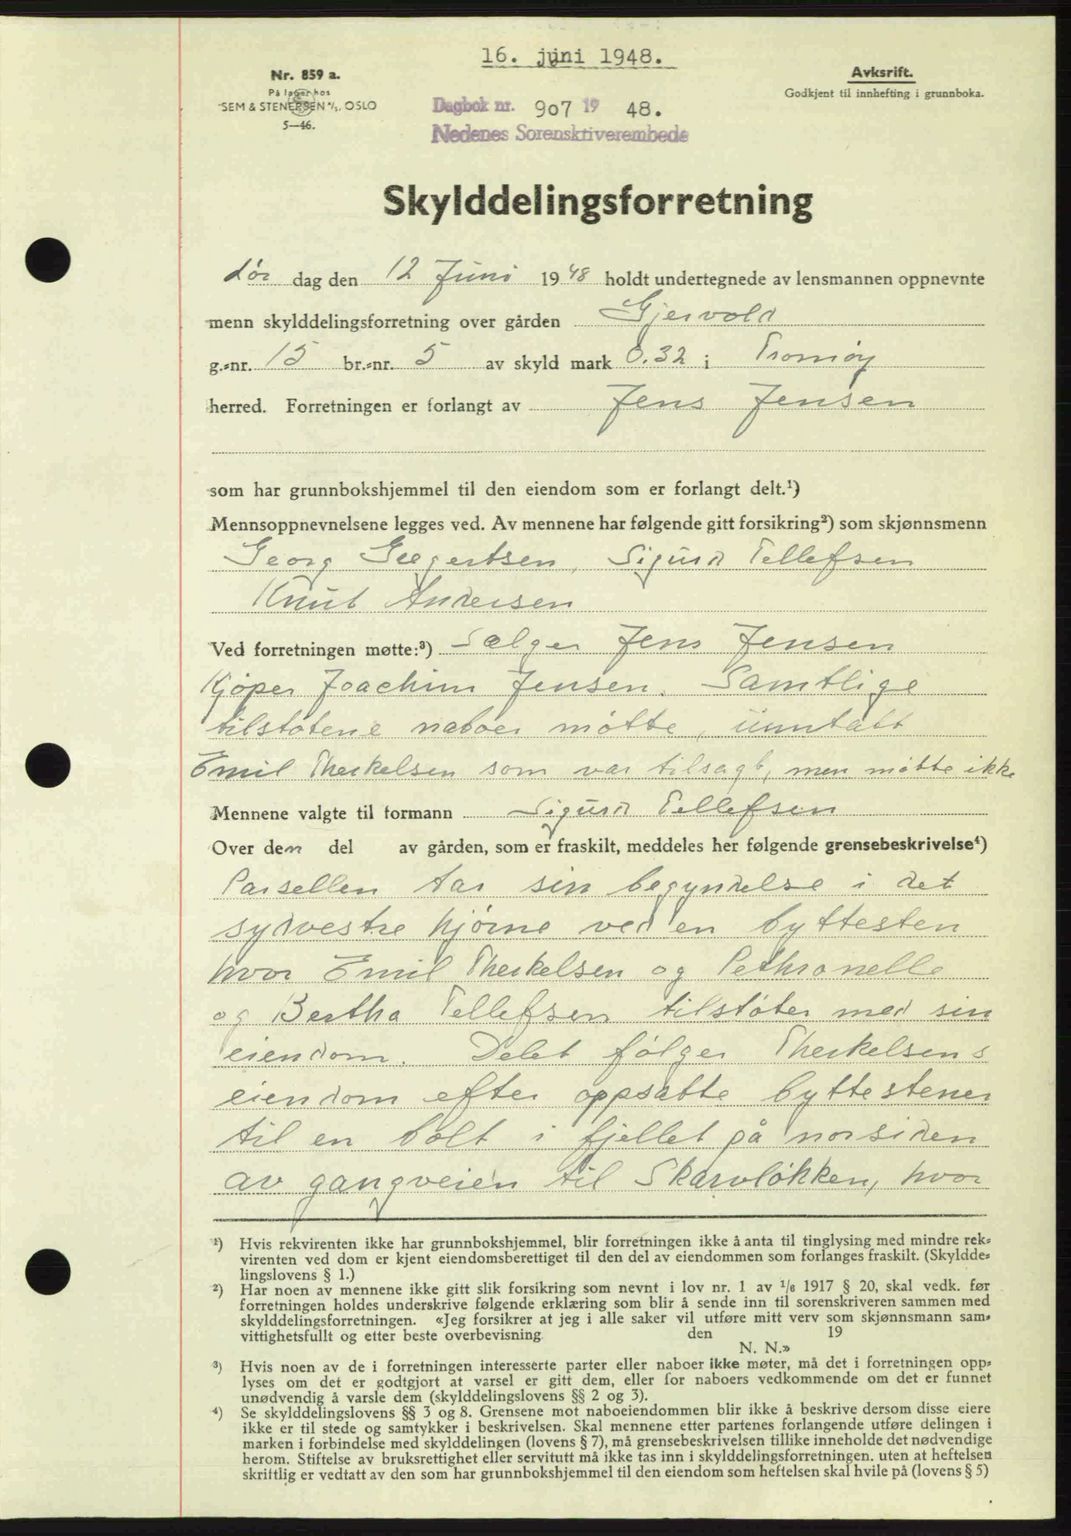 16. juni 1948.
Nr. 859 a.
På lager hos
SEM & STENERSEN A/S, OSLO
5—46.
Avksrift.
Godkjent til innhefting i grunnboka.
Dagbok nr. 907 19 48.
Nedenes Sorensktiverembede
Skylddelingsforretning
Lør dag den 12 Juni 1948 holdt undertegnede av lensmannen oppnevnte
menn skylddelingsforretning over gården Gjervold
g.-nr. 15 br.-nr. 5 av skyld mark 0.32 i Tromøy
herred. Forretningen er forlangt av Jens Jensen
som har grunnbokshjemmel til den eiendom som er forlangt delt.¹)
Mennsoppnevnelsene legges ved. Av mennene har følgende gitt forsikring²) som skjønnsmenn
Georg Gregertsen, Sigurd Tellefsen
Knut Andersen
Ved forretningen møtte:³) Sælger Jens Jensen
Kjøper Joachim Jensen. Samtlige
tilstøtene naboer møtte, unntatt
Emil Therkelsen som var tilsagt, men møtte ikke
Mennene valgte til formann Sigurd Tellefsen
Over den del av gården, som er fraskilt, meddeles her følgende grensebeskrivelse⁴)
Parsellen tar sin begyndelse i det
sydvestre hjørne ved en byttesten
hvor Emil Therkelsen og Pethronelle
og Bertha Tellefsen tilstøter med sin
eiendom. Delet følger Therkelsens
eiendom efter oppsatte byttestener
til en bolt i fjellet på norsiden
av gangveien til Skarvløkken, hvor
¹) Hvis rekvirenten ikke har grunnbokshjemmel, blir forretningen ikke å anta til tinglysing med mindre rek-
virenten ved dom er kjent eiendomsberettiget til den del av eiendommen som forlanges fraskilt. (Skyldde-
lingslovens § 1.)
²) Har noen av mennene ikke gitt slik forsikring som nevnt i lov nr. 1 av 1/6 1917 § 20, skal vedk. før
forretningen holdes underskrive følgende erklæring som blir å sende inn til sorenskriveren sammen med
skylddelingsforretningen. «Jeg forsikrer at jeg i alle saker vil utføre mitt verv som skjønnsmann sam-
vittighetsfullt og etter beste overbevisning den 19
N. N.»
³) Hvis noen av de i forretningen interesserte parter eller naboer ikke møter, må det i forretningen opp-
lyses om det er godtgjort at varsel er gitt dem, eller for naboers vedkommende om det er funnet
unødvendig å varsle dem (skylddelingslovens §§ 2 og 3).
⁴) Se skylddelingslovens §§ 3 og 8. Grensene mot naboeiendommen blir ikke å beskrive dersom disse eiere
ikke er til stede og samtykker i beskrivelsen. Skal mennene etter partenes forlangende utføre delingen i
marken i forbindelse med skylddelingen (lovens § 7), må grensebeskrivelsen tillike inneholde det nødvendige
herom. Stiftelse av bruksrettighet eller servitutt må ikke tas inn i skylddelingsforretningen. uten at heftelsen
skriftlig er vedtatt av den som har grunnbokshjemmel til den eiendom som heftelsen skal hvile på (lovens § 5)